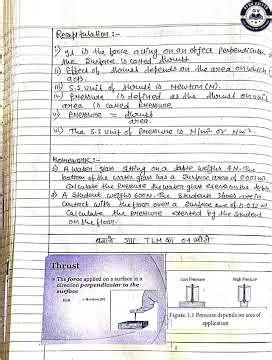 Recapitulation :-
i) It is the force acting on an object perpendicular to
the surface is called thrust
ii) Effect of thrust depends on the area on which it
acts.
iii) S.I. unit of thrust is Newton (N).
iv) Pressure is defined as the thrust on unit
area is called pressure
v) Pressure = thrust
area.
vi) The S.I unit of pressure is N/m² or Nm⁻².
Homework :-
1) A water glass sitting on a table weighs 4 N. The
bottom of the water glass has a surface area of 0.003 m².
Calculate the pressure the water glass exerts on the table.
2) A student weighs 600N. The student's shoes are in
contact with the floor over a surface area of 0.012 m².
Calculate the pressure exerted by the student
on the floor.
TLM
Thrust
The force applied on a surface in a
direction perpendicular to the
surface
Low Pressure
High Pressure
Figure 1.1 Pressure depends on area of
application